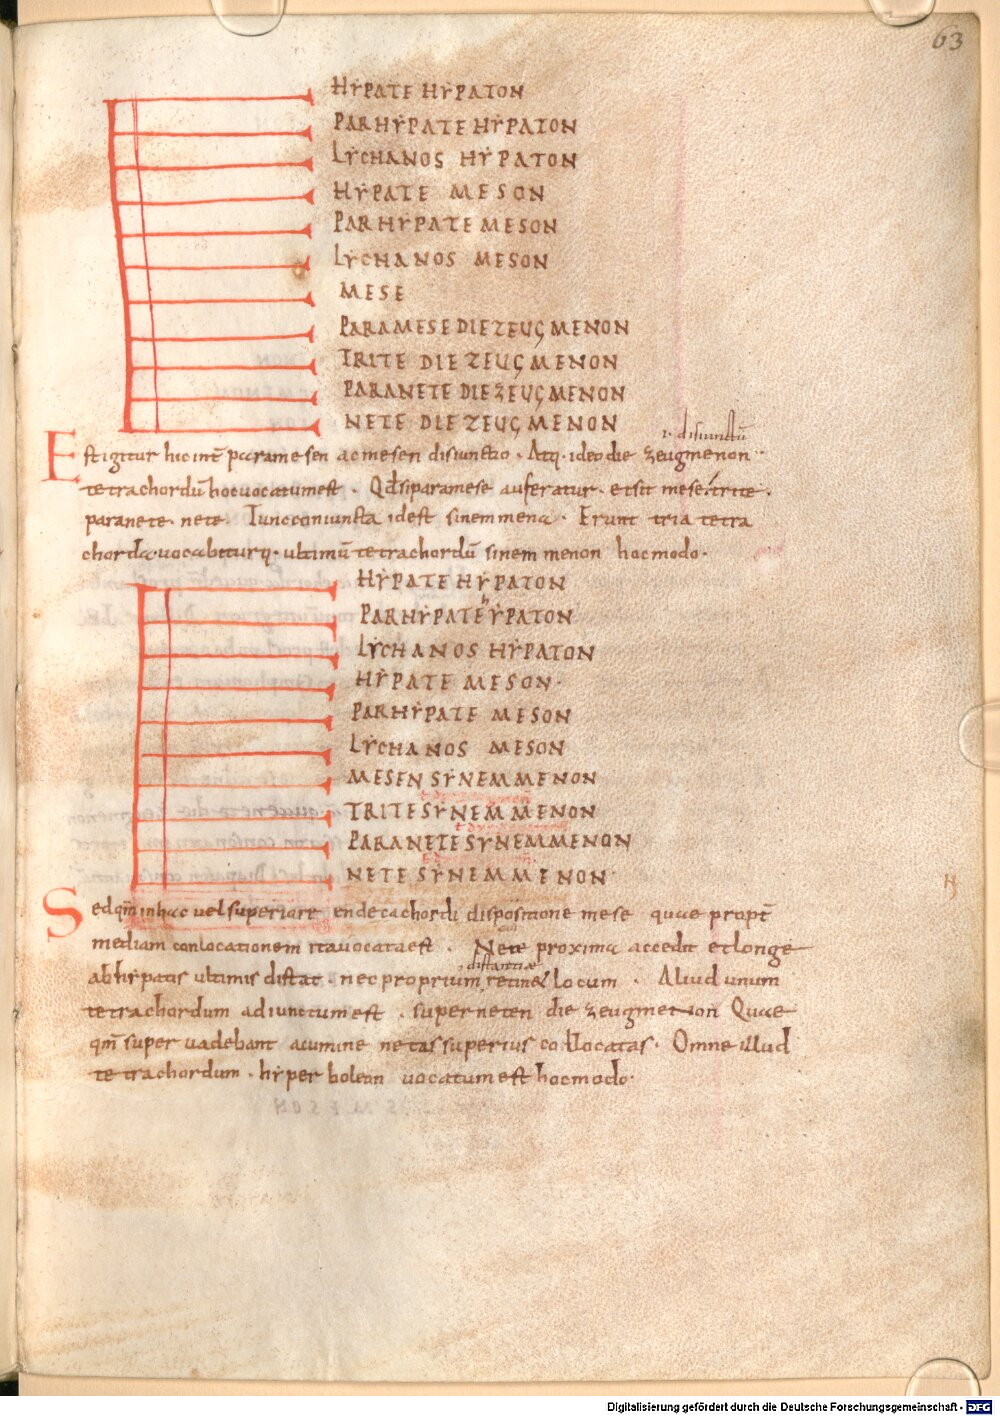 63
HYPATE HYPATON
PARHYPATE HYPATON
LYCHANOS HYPATON
HYPATE MESON
PARHYPATE MESON
LYCHANOS MESON
MESE
PARAMESE DIEZEUGMENON
TRITE DIEZEUGMENON
PARANETE DIEZEUGMENON
NETE DIEZEUGMENON
.i. disiunctũ
Est igitur hic int̄ paramesen ac mesen disiunctio. Atq; ideo die zeugmenon
tetrachordũ hoc vocatum est. Qđ si paramese auferatur. et sit mese. trite.
paranete. nete. Tunc coniuncta id est sinemmena. Erunt tria tetra
chorda. vocabiturq; ultimũ tetrachordũ sinem menon hoc modo.
HYPATE HYPATON
PARHYPATE HYPATON
LYCHANOS HYPATON
HYPATE MESON.
PARHYPATE MESON
LYCHANOS MESON
MESEN SYNEMMENON
TRITE SYNEMMENON
PARANETE SYNEMMENON
NETE SYNEMMENON
Sed qm̄ in hac vel superiore endecachordi dispositione mese quae propt̄
mediam conlocationem ita vocata est. Nete proxima accedit et longe
ab hypatis ultimis distat. nec proprium retinet locum. Aliud unum
distantiae
tetrachordum adiunctum est. super neten die zeugmenon Quae
qm̄ super vadebant acumine netas superius collocatas. Omne illud
tetrachordum. hyper boleon vocatum est hoc modo.
Digitalisierung gefördert durch die Deutsche Forschungsgemeinschaft - DFG